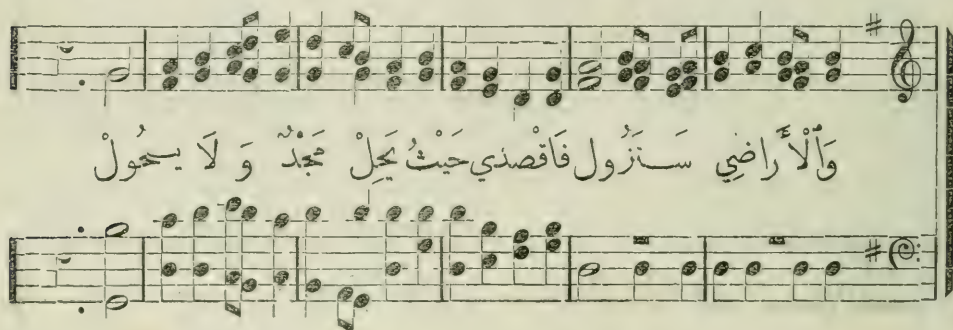 وَٱلْأَرَاضِي سَتَزُول فَاقْصدِي حَيْثُ يَحِلْ مَجْدٌ وَ لَا يَحُولْ